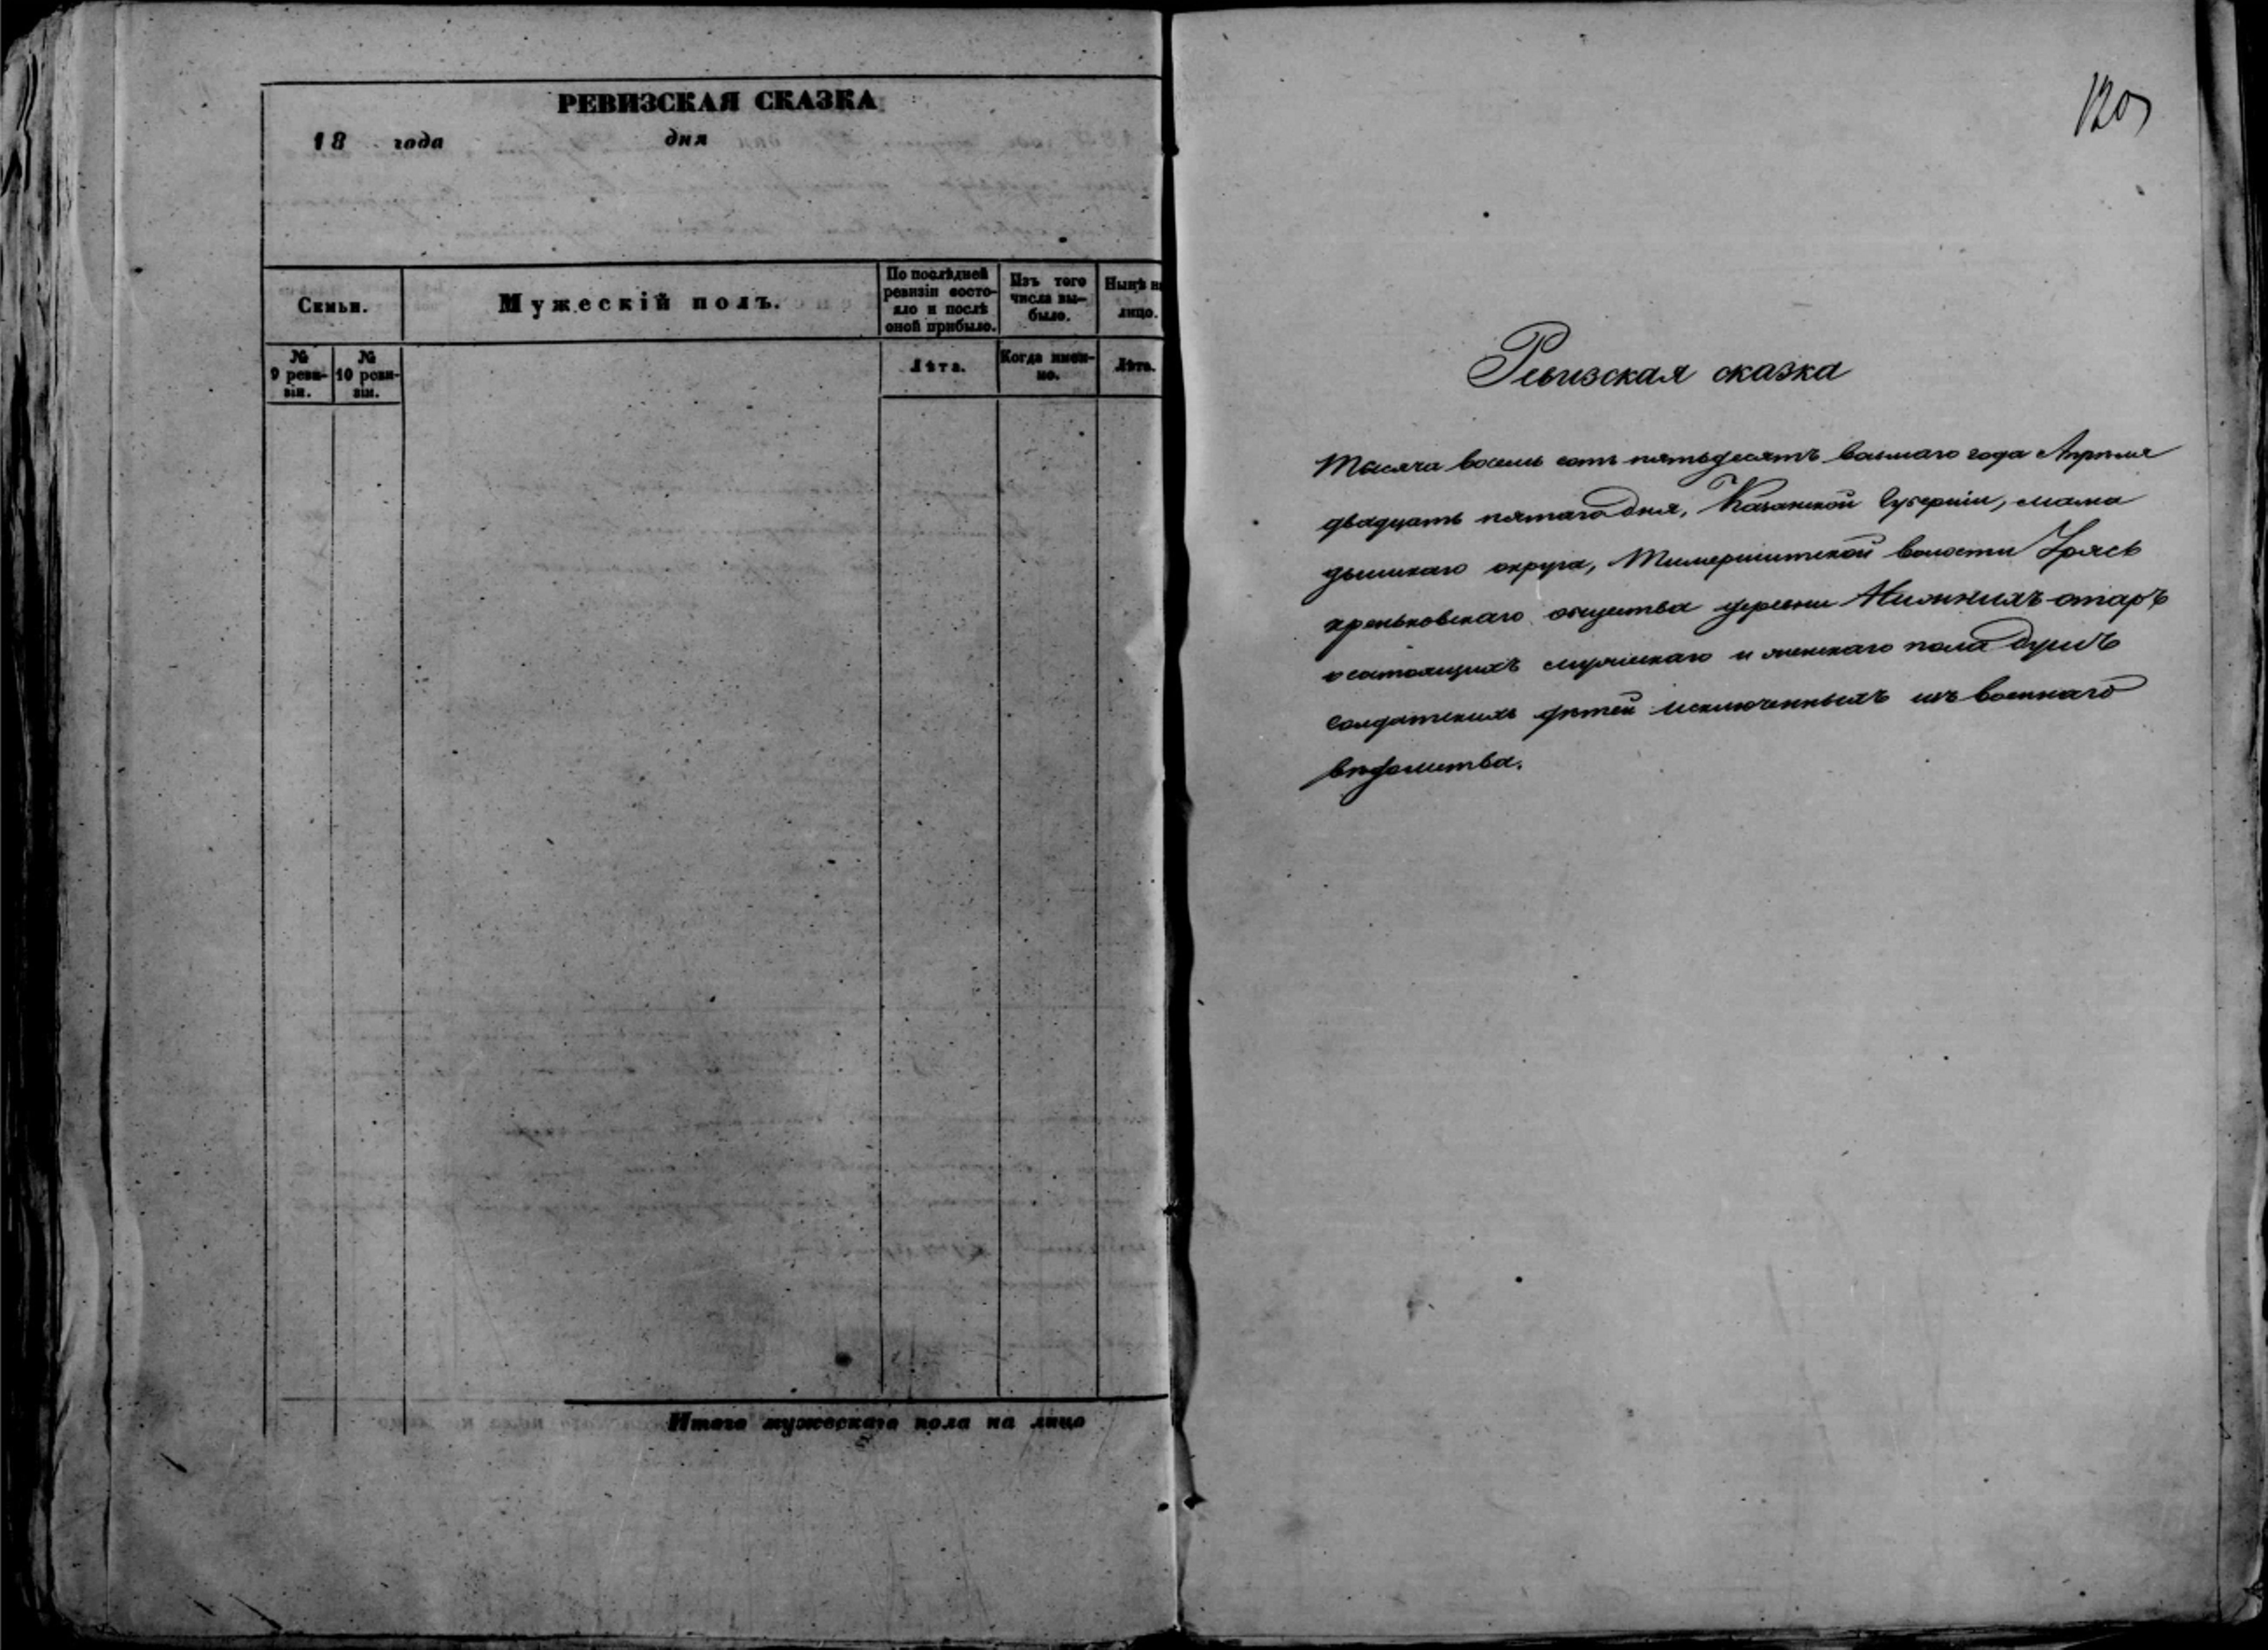 РЕВИЗСКАЯ СКАЗКА
18 года дня
Семьи.
Мужескій полъ.
По послѣдней ревизіи состояло и послѣ оной прибыло.
Изъ того числа выбыло.
Нынѣ на лицо.
№ 9 ревизіи.
№ 10 ревизіи.
Лѣта.
Когда именно.
Лѣта.
Итого мужескаго пола на лицо
120
Ревизская сказка
Тысяча восемь сотъ пятьдесятъ восьмаго года Апрѣля
двадцать пятаго дня, Казанской Губерніи, мама
дышскаго округа, волости Урясь
общества деревни Нижнихъ отаръ
о состоящихъ мужескаго и женскаго пола душъ
солдатскихъ дѣтей исключенныхъ изъ военнаго
вѣдомства.